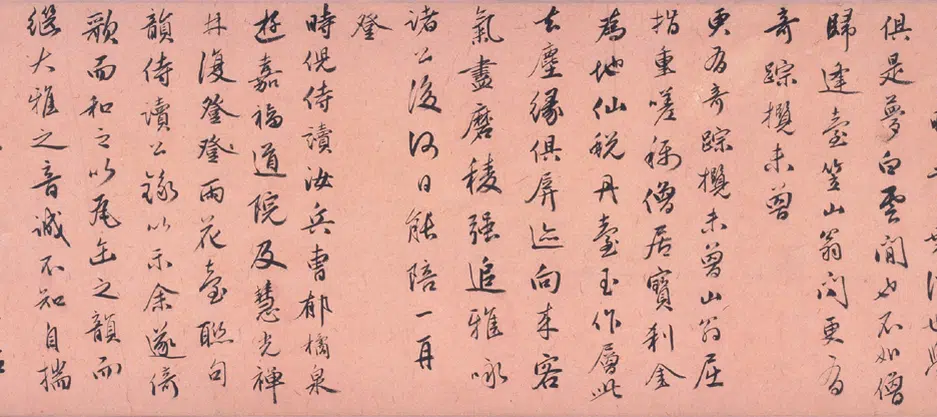 俱是夢白雲閒也不如僧
歸逢臺笠山翁問更有
奇踪攬未曾
更有奇踪攬未曾山翁屈
指重嗟稱僧居寶刹金
為地仙蛻丹臺玉作層此
去塵緣俱屏迹向来客
氣盡磨稜强追雅咏
諸公後何日能陪一再
登
時倪侍讀汝兵曹郁橘泉
遊嘉福道院及慧光禪
林復登登雨花臺聯句
韻侍讀公録以示余遂倚
歌而和之以瓦缶之韻而
継大雅之音誠不知自揣